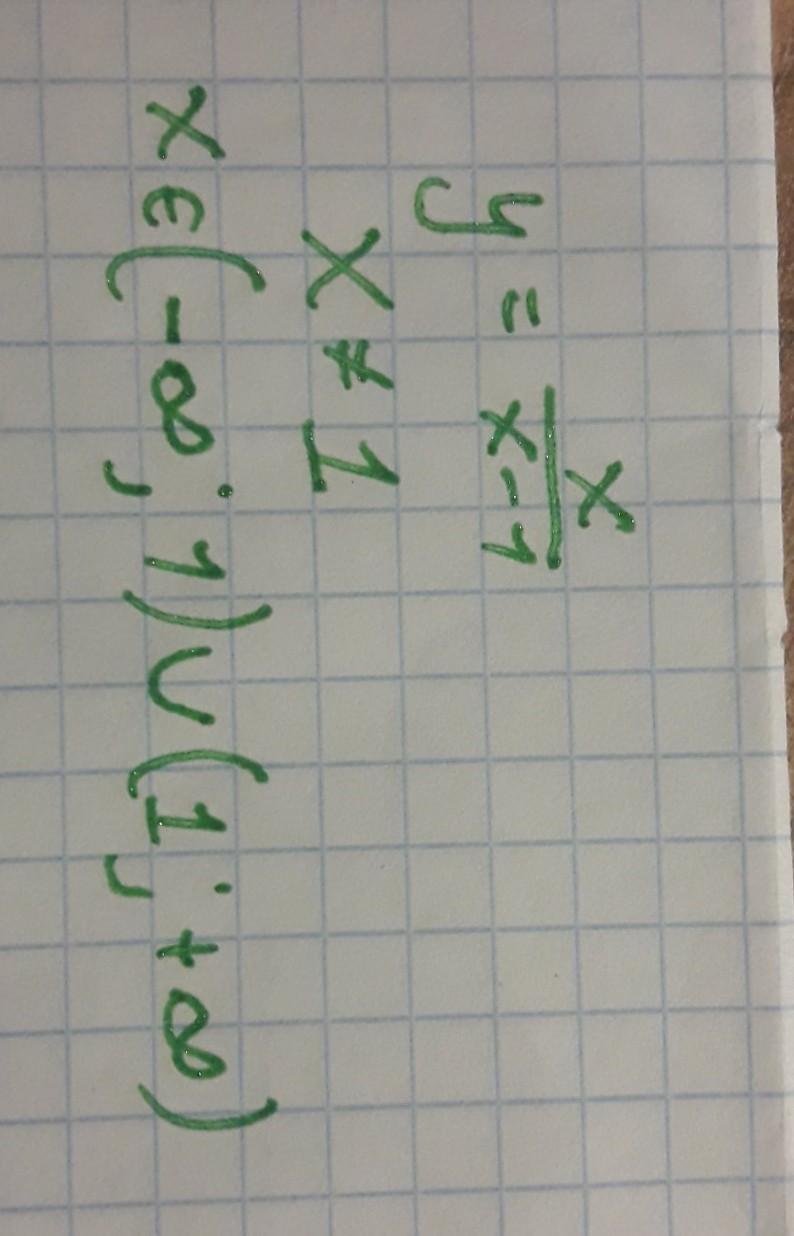 y = x/(x-1)
x ≠ 1
x ∈ (-∞; 1) ∪ (1; +∞)